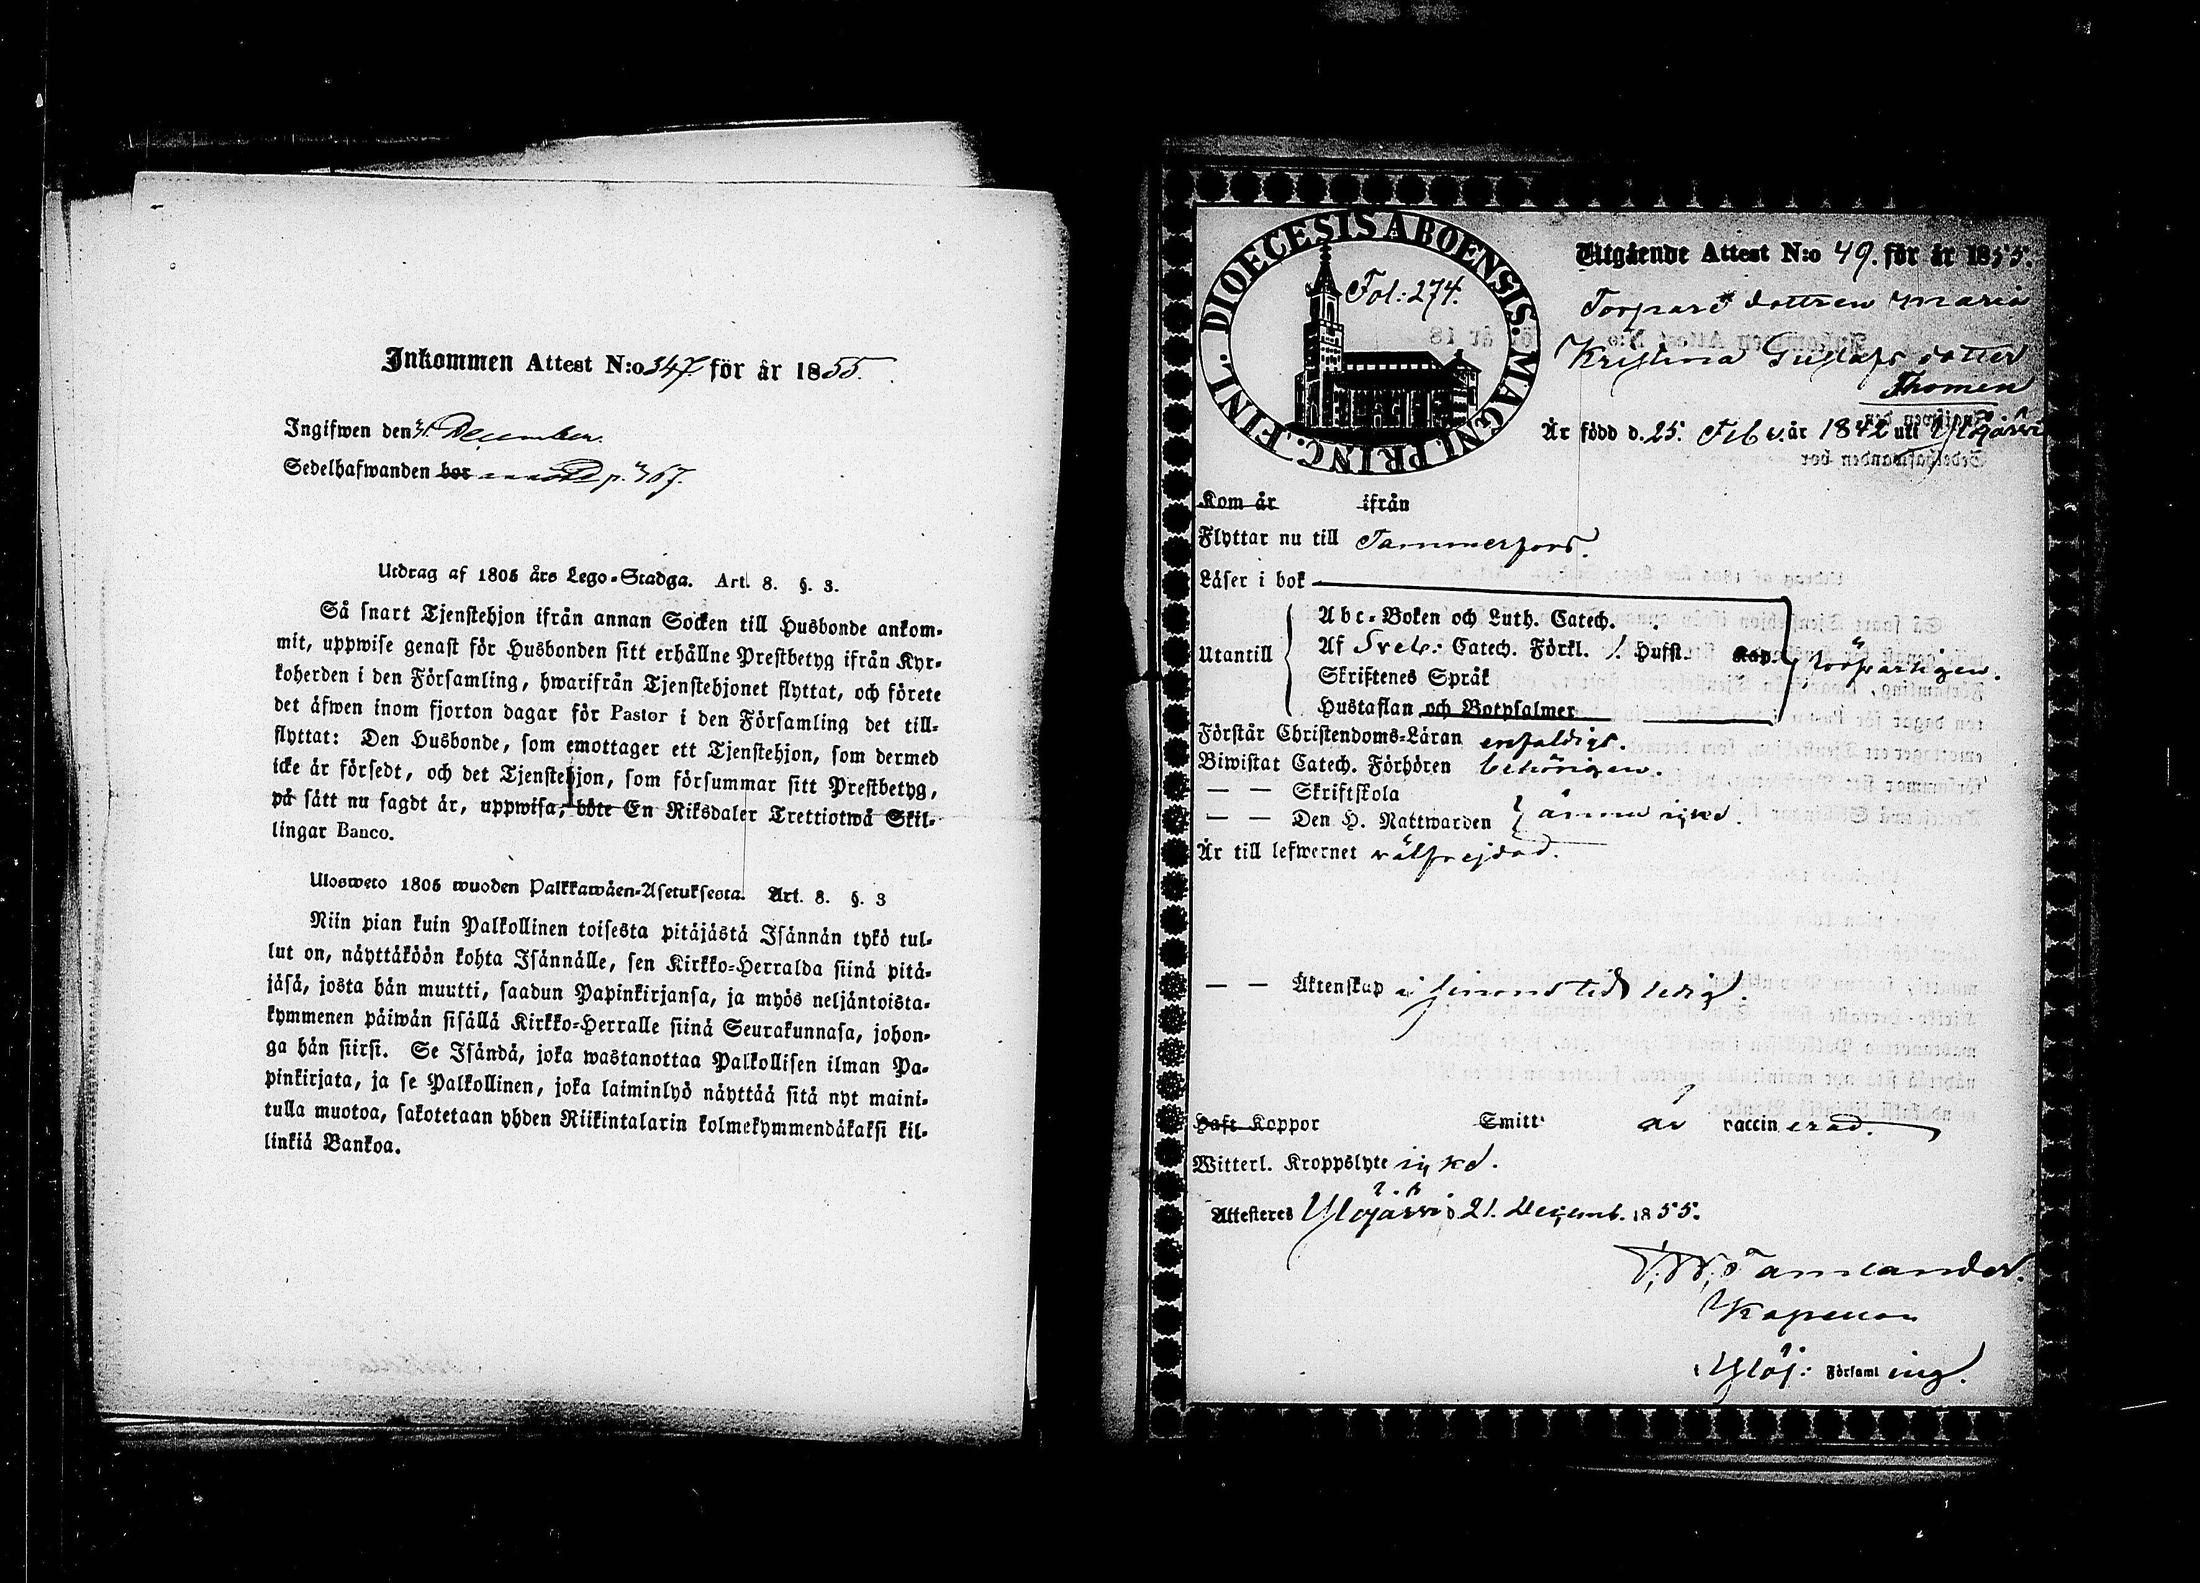 Inkommen Attest N:o 347. för år 1855.
Ingifwen den 31. December.
Sedelhafwanden bor p. 367.
Utdrag af 1805 års Lego-Stadga. Art. 8. §. 3.
Så snart Tjenstehjon ifrån annan Socken till Husbonde ankom-
mit, uppwise genast för Husbonden sitt erhållne Prestbetyg ifrån Kyr-
koherden i den Församling, hwarifrån Tjenstehjonet flyttat, och förete
det äfwen inom fjorton dagar för Pastor i den Församling det till-
flyttat: Den Husbonde, som emottager ett Tjenstehjon, som dermed
icke är försedt, och det Tjenstehjon, som försummar sitt Prestbetyg,
på sätt nu sagdt är, uppwisa, böte En Riksdaler Trettiotwå Skil-
lingar Banco.
Ulosweto 1805 wuoden Palkkawäen-Asetuksesta. Art. 8. §. 3
Niin pian kuin Palkollinen toisesta pitäjästä Isännän tykö tul-
lut on, näyttäköön kohta Isännälle, sen Kirkko-Herralda siinä pitä-
jäsä, josta hän muutti, saadun Papinkirjansa, ja myös neljäntoista-
kymmenen päiwän sisällä Kirkko-Herralle siinä Seurakunnasa, johon-
ga hän siirsi. Se Isändä, joka wastanottaa Palkollisen ilman Pa-
pinkirjata, ja se Palkollinen, joka laiminlyö näyttää sitä nyt maini-
tulla muotoa, sakotetaan yhden Riikintalarin kolmekymmendäkaksi kil-
linkiä Bankoa.
DIOECESIS ABOENSIS. MAGNI. PRINC. FINL.
Fol: 274.
Utgående Attest N:o 49. för år 1855.
Torpare dottren Maria
Kristina Gustafs dotter
Thomen
Är född d. 25. Feb. år 1842 uti Ylöjärvi
Kom år ifrån
Flyttar nu till Tammerfors.
Läser i bok
Utantill
Abc-Boken och Luth. Catech.
Af Sveb: Catech. Förkl. 1. Hufst. Kap.
Skriftenes Språk
Hustaflan och Botpsalmer
försvarligen.
Förstår Christendoms-Läran enfaldigt.
Biwistat Catech. Förhören behörigen.
— — Skriftskola
— — Den H. Nattwarden ännu icke.
Är till lefwernet välfrejdad.
— — Äktenskap ledig.
Haft Koppor Smitt är vaccinerad.
Witterl. Kroppslyte icke.
Attesteres Ylöjärvi d. 21. Decemb. 1855.
Tamlander.
Kapellan
i Ylöj: Församling.